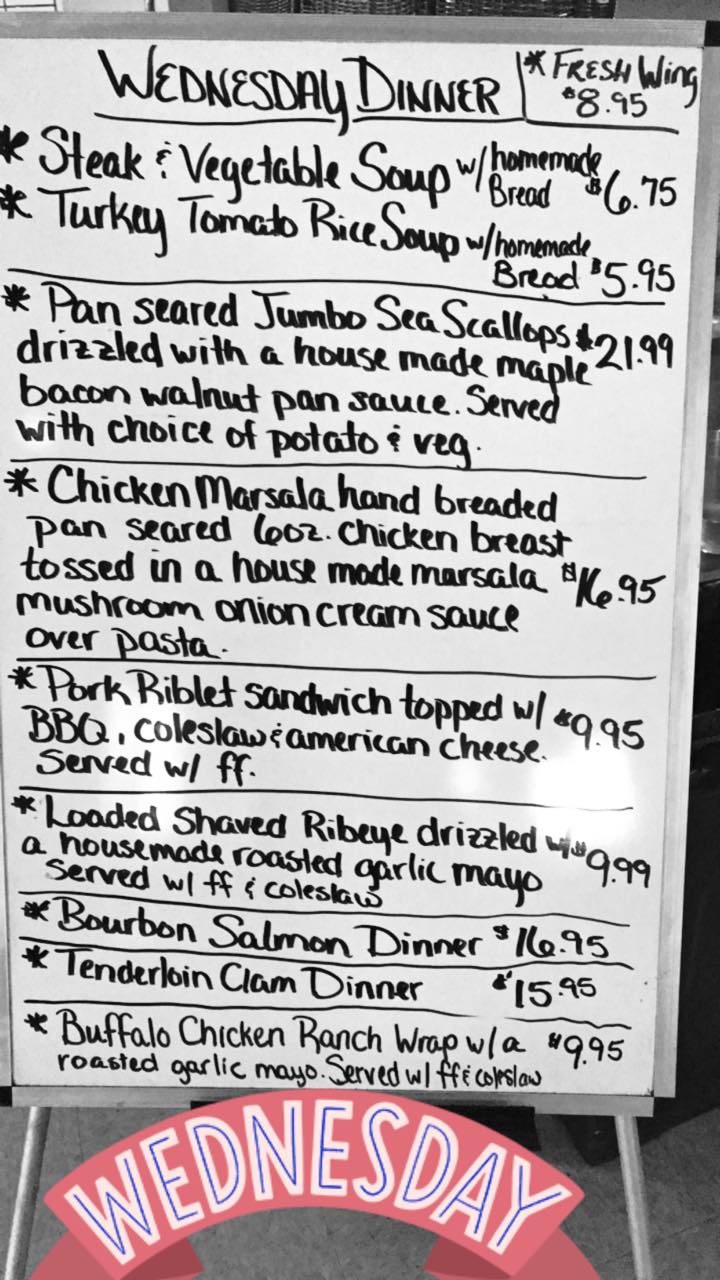 WEDNESDAY DINNER
* FRESH Wing
$8.95
* Steak & Vegetable Soup w/ homemade
Bread $6.75
* Turkey Tomato Rice Soup w/ homemade
Bread $5.95
* Pan seared Jumbo Sea Scallops $21.99
drizzled with a house made maple
bacon walnut pan sauce. Served
with choice of potato & veg.
* Chicken Marsala hand breaded
pan seared 6oz. chicken breast
tossed in a house made marsala $16.95
mushroom onion cream sauce
over pasta.
* Pork Riblet sandwich topped w/ $9.95
BBQ, coleslaw & american cheese.
Served w/ ff.
* Loaded Shaved Ribeye drizzled w/ $9.99
a housemade roasted garlic mayo
Served w/ ff & coleslaw
* Bourbon Salmon Dinner $16.95
* Tenderloin Clam Dinner $15.95
* Buffalo Chicken Ranch Wrap w/ a $9.95
roasted garlic mayo. Served w/ ff & coleslaw
WEDNESDAY